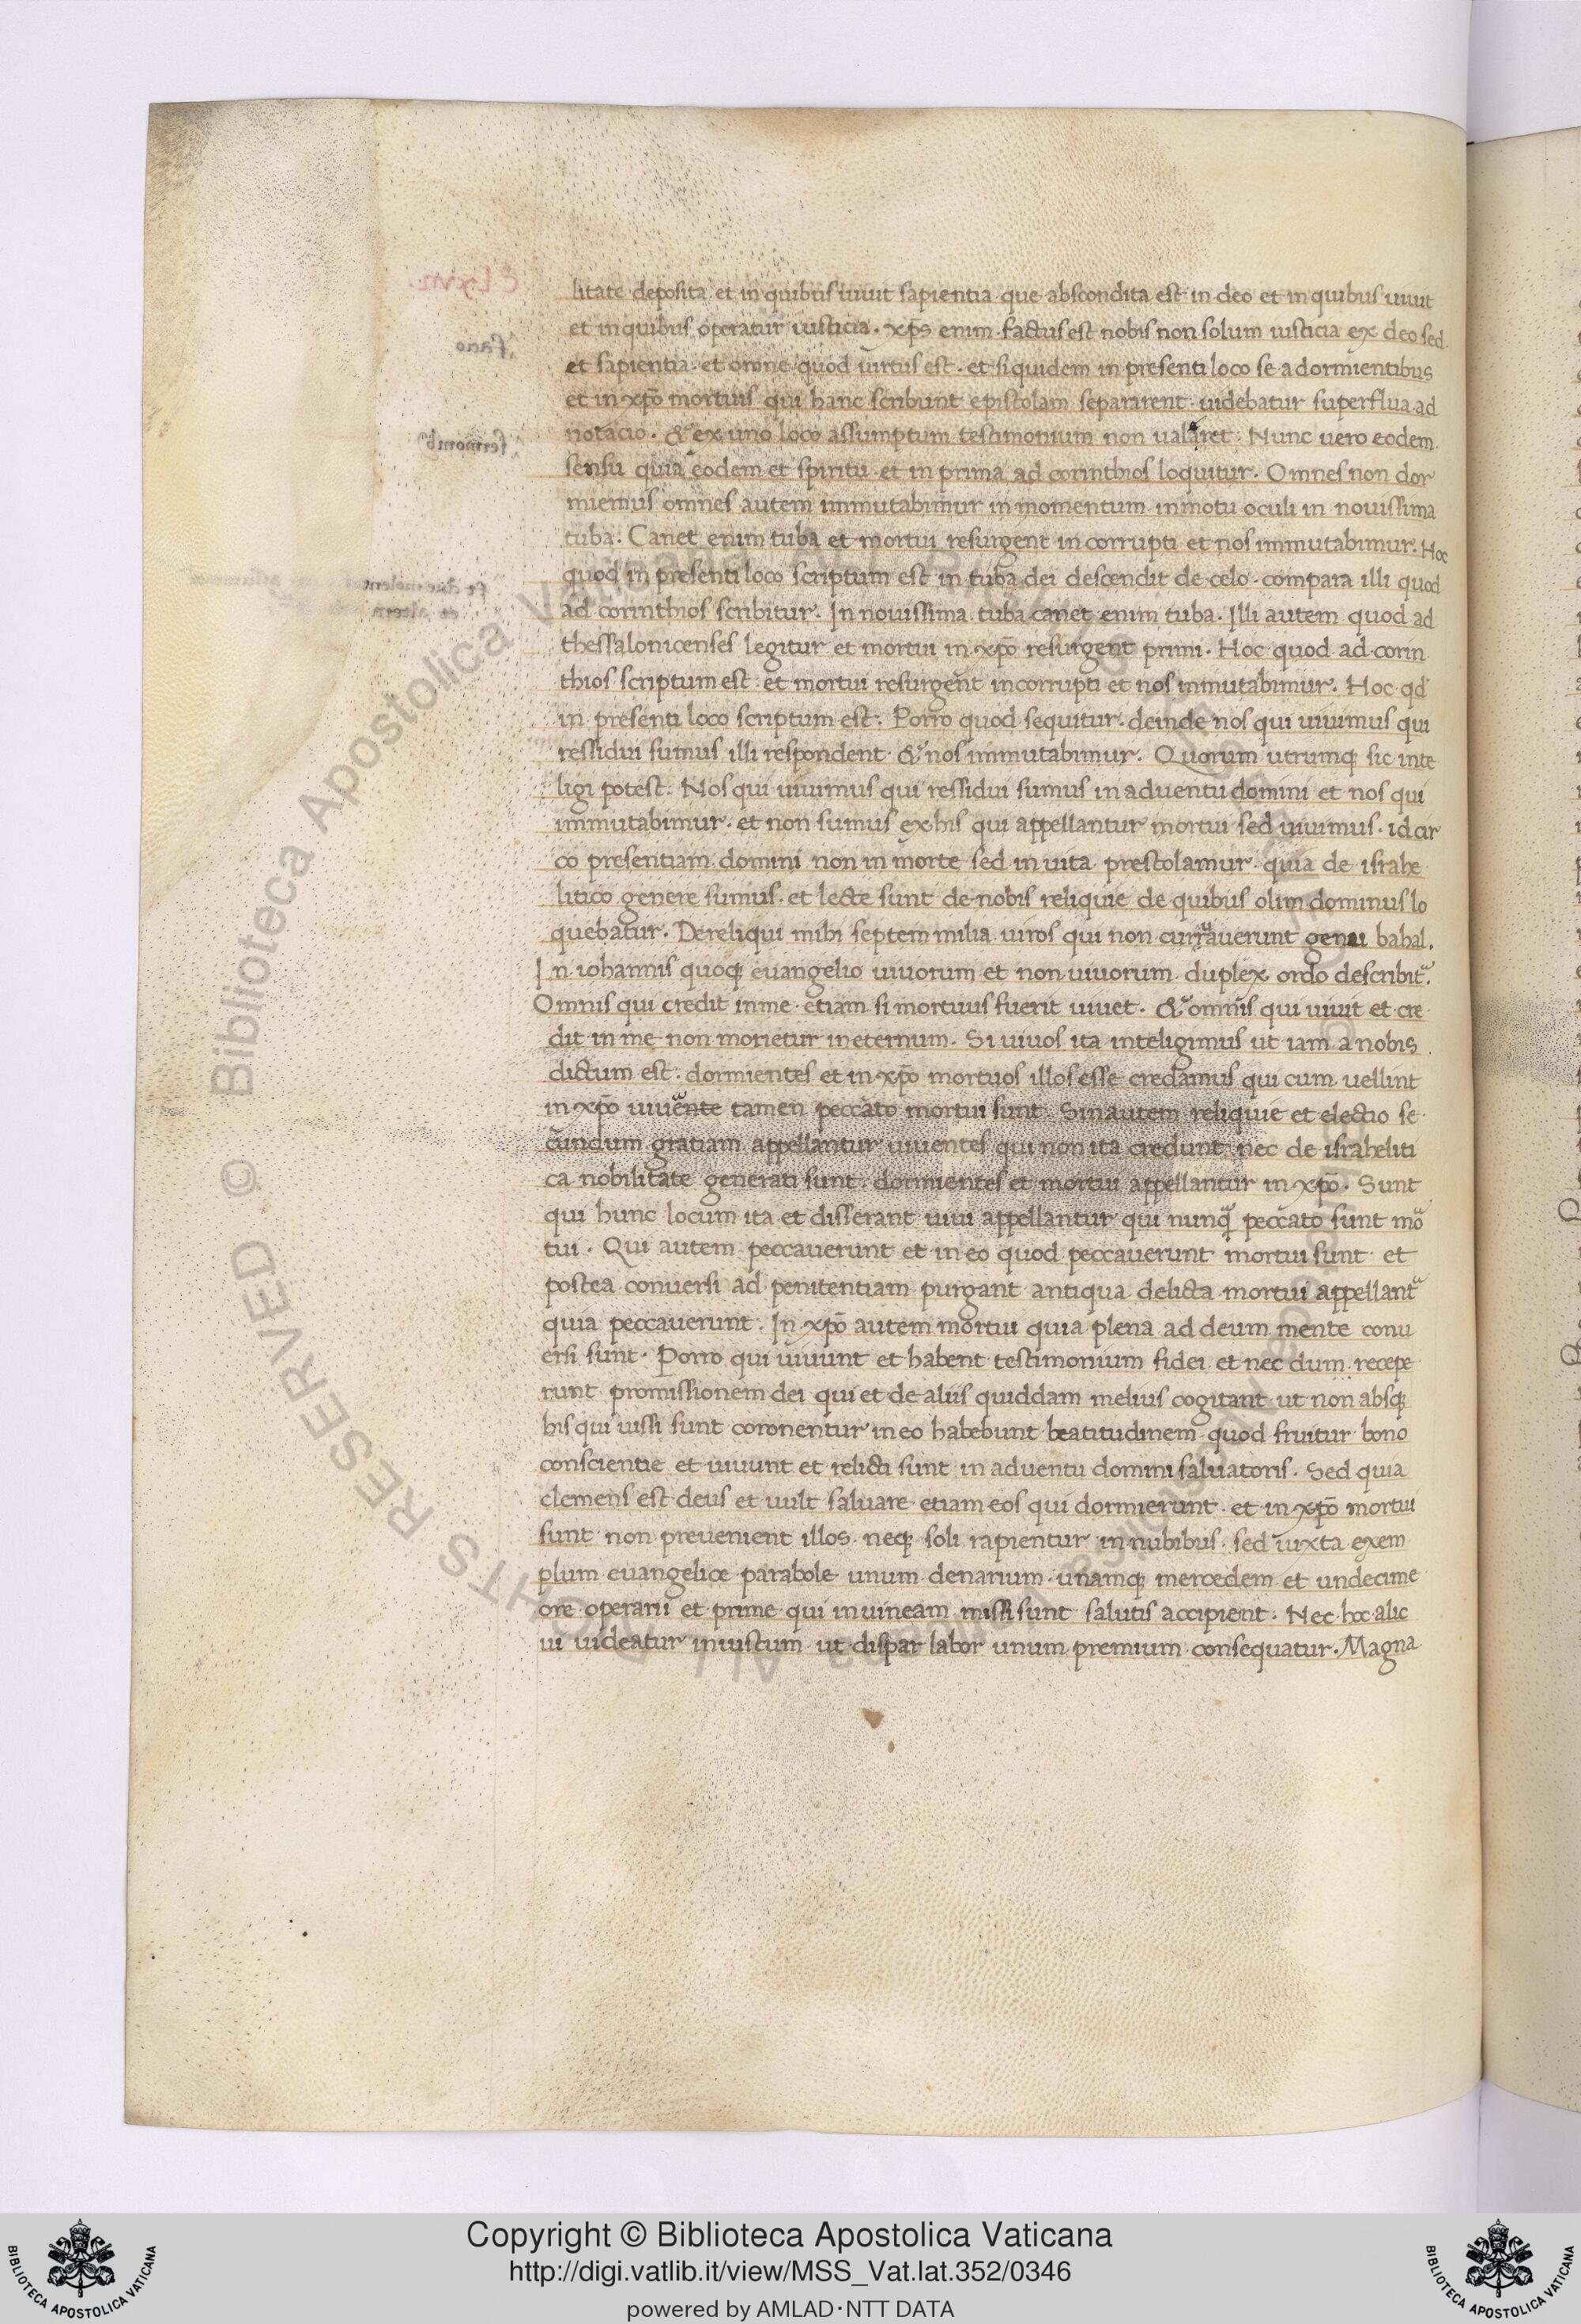 litate deposita et in quibus uiuit sapientia que abscondita est in deo et in quibus uiuit
et in quibus operatur iusticia. xp̄s enim factus est nobis non solum iusticia ex deo sed
et sapientia et omne quod uirtus est. et siquidem in presenti loco se a dormientibus
et in xpō mortuis qui hanc scribunt epistolam separarent uidebatur superflua ad
notacio. & ex uno loco assumptum testimonium non ualeret. Nunc uero eodem
sensu quia eodem et spiritu et in prima ad corinthios loquitur. Omnes non dor
miemus omnes autem immutabimur in momentum in motu oculi in nouissima
tuba. Canet enim tuba et mortui resurgent incorrupti et nos immutabimur. Hoc
quod in presenti loco scriptum est in tuba dei descendit de celo. compara illi quod
ad corinthios scribitur. In nouissima tuba canet enim tuba. Illi autem quod ad
thessalonicenses legitur et mortui in xpō resurgent primi. Hoc quod ad corin
thios scriptum est. et mortui resurgent incorrupti et nos inmutabimur. Hoc qd
in presenti loco scriptum est. Porro quod sequitur. deinde nos qui uiuimus qui
ressidui sumus illi respondent & nos immutabimur. Quorum utrumq; sic inte
ligi potest. Nos qui uiuimus qui ressidui sumus in aduentu domini et nos qui
immutabimur. et non sumus ex his qui appellantur mortui sed uiuimus. id cir
co presentiam domini non in morte sed in uita prestolamur. quia de israhe
litico genere sumus. et lecte sunt de nobis reliquie de quibus olim dominus lo
quebatur. Dereliqui mihi septem milia uiros qui non curuauerunt genu bahal.
In iohannis quoq; euangelio uiuorum et non uiuorum duplex ordo describit᷑.
Omnis qui credit in me etiam si mortuus fuerit uiuet. & omnis qui uiuit et cre
dit in me non morietur in eternum. Si uiuos ita inteligimus ut iam a nobis
dictum est. dormientes et in xpō mortuos illos esse credamus qui cum uellint
in xpō uiuente tamen peccato mortui sunt. Sin autem reliquie et electio se
cundum gratiam appellantur uiuentes qui non ita credunt nec de israheliti
ca nobilitate generati sunt. dormientes et mortui appellantur in xpō. Sunt
qui hunc locum ita et disserant uiui appellantur qui nunq̄ peccato sunt mo
tui. Qui autem peccauerunt et in eo quod peccauerunt mortui sunt et
postea conuersi ad penitentiam purgant antiqua delicta mortui appellant᷑
quia peccauerunt. In xpō autem mortui quia plena ad deum mente conu
ersi sunt. Porro qui uiuunt et habent testimonium fidei et nec dum recepe
runt promissionem dei qui et de aliis quiddam melius cogitant ut non absq;
his qui uissi sunt coronentur in eo habebunt beatitudinem quod fruitur bono
conscientie et uiuunt et relicti sunt in aduentu domini saluatoris. Sed quia
clemens est deus et uult saluare etiam eos qui dormierunt et in xpō mortui
sunt non preuenient illos neq; soli rapientur in nubibus sed iuxta exem
plum euangelice parabole unum denarium unamq; mercedem et undecime
ore operarii et prime qui in uineam missi sunt salutis accipient. Nec hoc alic
ui uideatur iniustum ut dispar labor unum premium consequatur. Magna
Copyright © Biblioteca Apostolica Vaticana
http://digi.vatlib.it/view/MSS_Vat.lat.352/0346
powered by AMLAD·NTT DATA
BIBLIOTECA APOSTOLICA VATICANA
BIBLIOTECA APOSTOLICA VATICANA